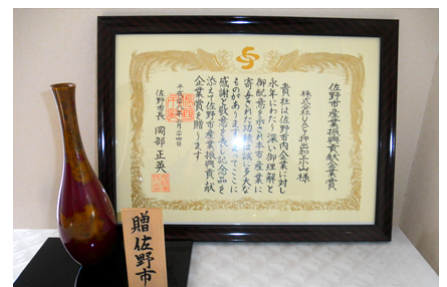 佐野市産業振興貢献企業賞
貴社は佐野市内企業に対し
永年にわたり深い御理解と
御配意を示され本市産業に
寄与された功績は誠に多大な
ものがありますよってここに
感謝と敬意を表し記念品を
添えて佐野市産業振興貢献
企業賞を贈ります
佐野市長 岡部正英
贈佐野市